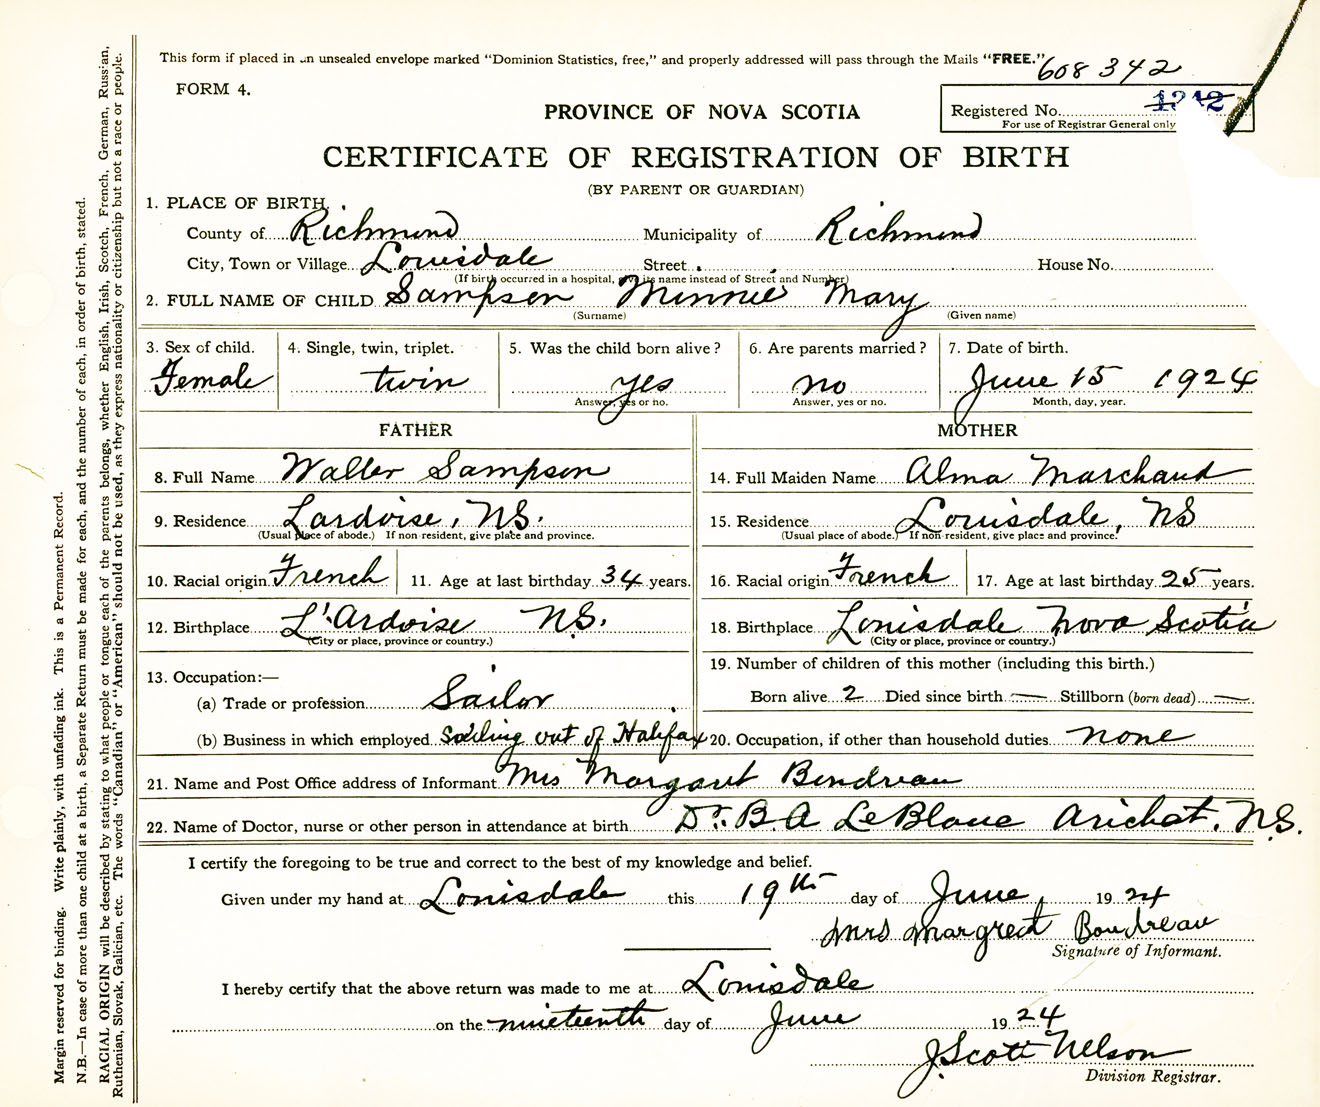 This form if placed in an unsealed envelope marked "Dominion Statistics, free," and properly addressed will pass through the Mails "FREE."
608342
FORM 4.
PROVINCE OF NOVA SCOTIA
Registered No. 1242
For use of Registrar General only
CERTIFICATE OF REGISTRATION OF BIRTH
(BY PARENT OR GUARDIAN)
1. PLACE OF BIRTH.
County of Richmond Municipality of Richmond
City, Town or Village Louisdale Street House No.
(If birth occurred in a hospital, give its name instead of Street and Number)
2. FULL NAME OF CHILD Sampson Minnie Mary
(Surname) (Given name)
3. Sex of child. 4. Single, twin, triplet. 5. Was the child born alive? 6. Are parents married? 7. Date of birth.
Female twin yes no June 15 1924
Answer, yes or no. Answer, yes or no. Month, day, year.
FATHER MOTHER
8. Full Name Walter Sampson 14. Full Maiden Name Alma Marchand
9. Residence Lardoise, NS. 15. Residence Louisdale, NS
(Usual place of abode.) If non-resident, give place and province. (Usual place of abode.) If non-resident, give place and province.
10. Racial origin French 11. Age at last birthday 34 years. 16. Racial origin French 17. Age at last birthday 25 years.
12. Birthplace L'Ardoise N.S. 18. Birthplace Louisdale Nova Scotia
(City or place, province or country.) (City or place, province or country.)
13. Occupation:— 19. Number of children of this mother (including this birth.)
(a) Trade or profession Sailor Born alive 2 Died since birth — Stillborn (born dead) —
(b) Business in which employed Sailing out of Halifax 20. Occupation, if other than household duties none
21. Name and Post Office address of Informant Mrs Margaret Boudreau
22. Name of Doctor, nurse or other person in attendance at birth Dr. B. A LeBlanc Arichat, N.S.
I certify the foregoing to be true and correct to the best of my knowledge and belief.
Given under my hand at Louisdale this 19th day of June 1924
Mrs Margreat Boudreau
Signature of Informant.
I hereby certify that the above return was made to me at Louisdale
on the nineteenth day of June 1924
J. Scott Nelson
Division Registrar.
Margin reserved for binding. Write plainly, with unfading ink. This is a Permanent Record.
N.B.—In case of more than one child at a birth, a Separate Return must be made for each, and the number of each, in order of birth, stated.
RACIAL ORIGIN will be described by stating to what people or tongue each of the parents belongs, whether English, Irish, Scotch, French, German, Russian,
Ruthenian, Slovak, Galician, etc. The words "Canadian" or "American" should not be used, as they express nationality or citizenship but not a race or people.